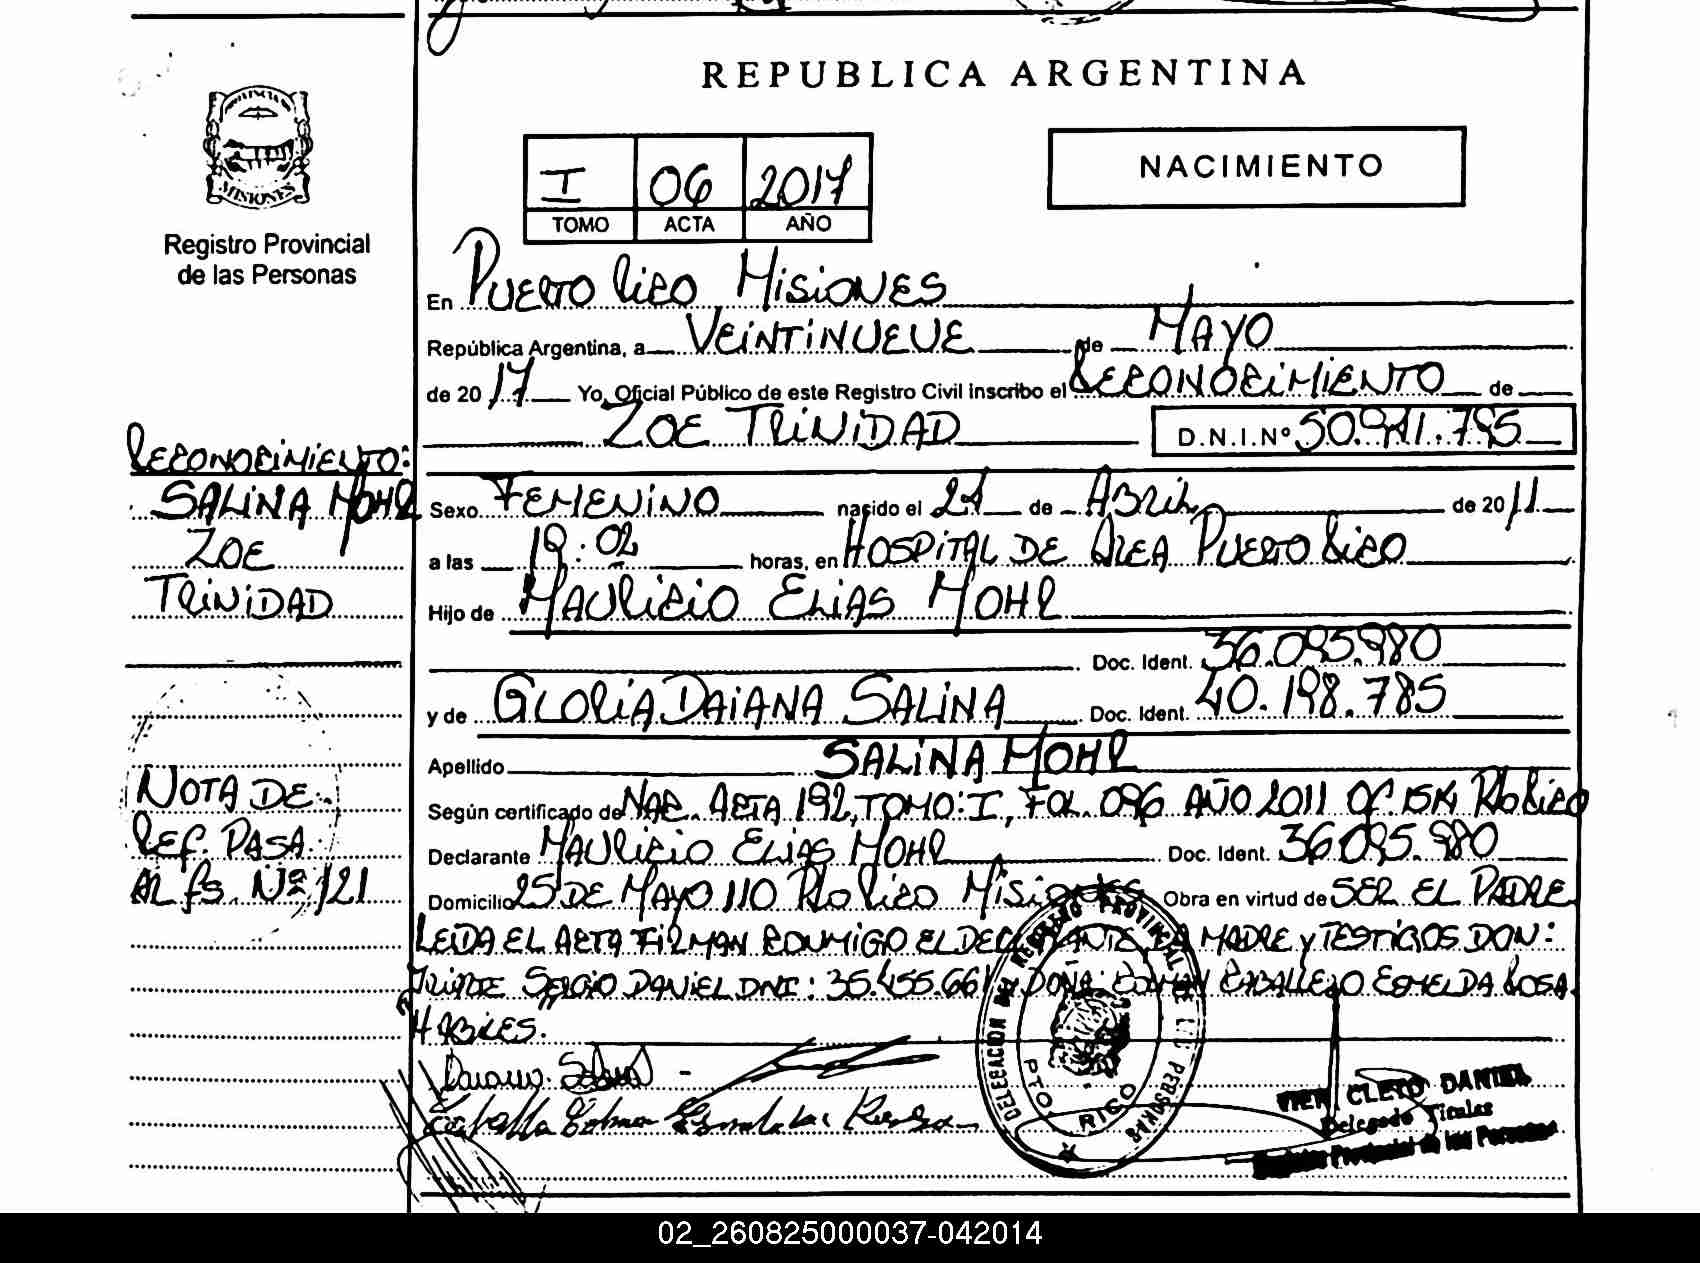 REPUBLICA ARGENTINA
PROVINCIA DE
MISIONES
Registro Provincial
de las Personas
I 06 2017
TOMO ACTA AÑO
NACIMIENTO
En Puerto Rico Misiones
República Argentina, a Veintinueve de Mayo
de 2017 Yo, Oficial Público de este Registro Civil inscribo el Reconocimiento de
Zoe Trinidad D.N.I.Nº 50.941.785
Reconocimiento:
Salina Mohr
Zoe
Trinidad
Sexo Femenino nacido el 21 de Abril de 2011
a las 19:02 horas, en Hospital de Area Puerto Rico
Hijo de Mauricio Elias Mohr
Doc. Ident. 36.095.980
y de Gloria Daiana Salina Doc. Ident. 40.198.785
Apellido Salina Mohr
Según certificado de Nac. Acta 192, Tomo: I, Fol. 096 Año 2011 Of. Pto Rico
Declarante Mauricio Elias Mohr Doc. Ident. 36.095.980
Domicilio 25 de Mayo 110 Pto Rico Misiones Obra en virtud de Ser el Padre
Nota de
Ref. Pasa
al fs. Nº 121
Leida el Acta firman conmigo el declarante, la madre y testigos Don:
Sergio Daniel DNI: 35.455.661 y Doña: Caballero Esmelda Rosa
Habiles.
DELEGACION DEL REGISTRO PROVINCIAL DE LAS PERSONAS
PTO. RICO
CLETO DANIEL
Delegado Titular
Registro Provincial de las Personas
02_260825000037-042014